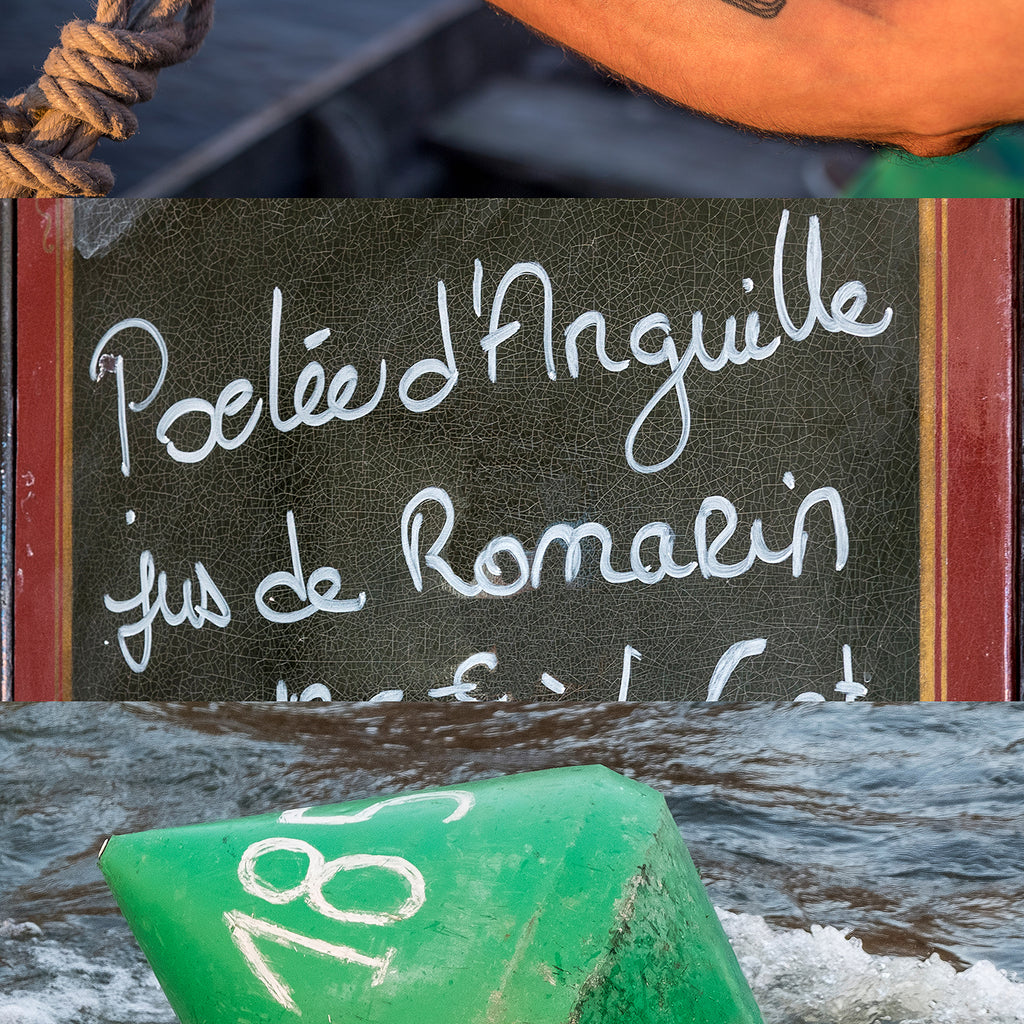 Poelée d'Anguille
jus de Romarin
185